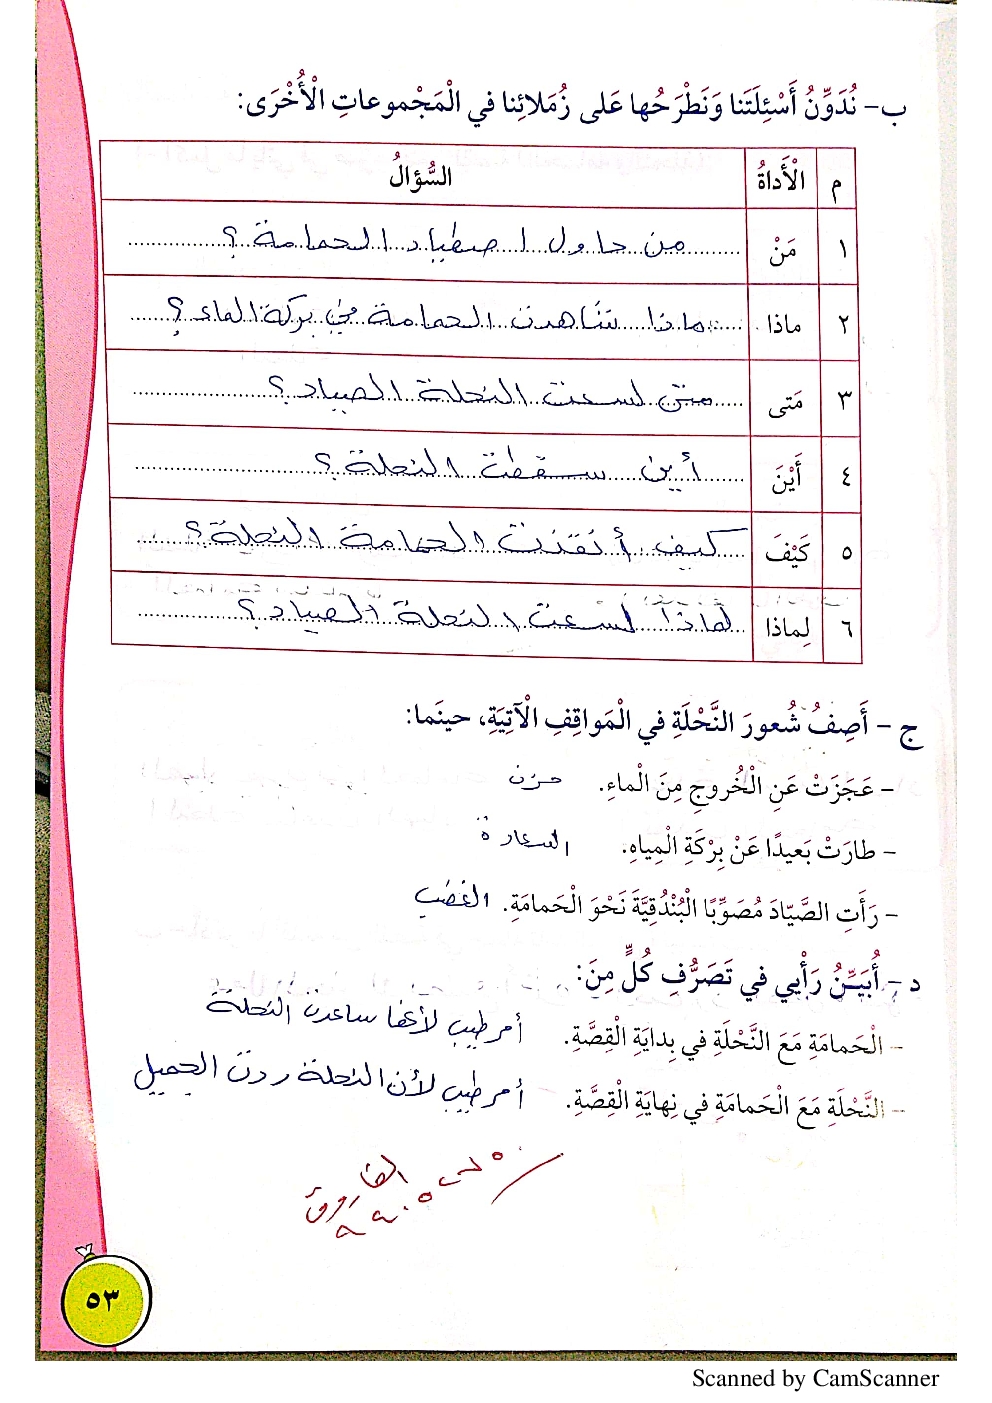 ب- نُدَوِّنُ أَسْئِلَتَنا وَنَطْرَحُها عَلى زُمَلائِنا في الْمَجْموعاتِ الْأُخْرَى:
م الْأَداةُ السُّؤالُ
١ مَنْ من حاول اصطياد الحمامة ؟
٢ ماذا ماذا شاهدت الحمامة في بركة الماء ؟
٣ مَتى متى لسعت النحلة الصياد ؟
٤ أَيْنَ أين سقطت النحلة ؟
٥ كَيْفَ كيف أنقذت الحمامة النحلة ؟
٦ لِماذا لماذا لسعت النحلة الصياد ؟
ج - أَصِفُ شُعورَ النَّحْلَةِ في الْمَواقِفِ الْآتِيَةِ، حينَما:
- عَجَزَتْ عَنِ الْخُروجِ مِنَ الْماءِ. حزن
- طارَتْ بَعيدًا عَنْ بِرْكَةِ الْمِياهِ. السعادة
- رَأَتِ الصَّيّادَ مُصَوِّبًا الْبُنْدُقِيَّةَ نَحْوَ الْحَمامَةِ. الغضب
د - أُبَيِّنُ رَأْيي في تَصَرُّفِ كُلٍّ مِنَ:
- الْحَمامَةِ مَعَ النَّحْلَةِ في بِدايَةِ الْقِصَّةِ. أمر طيب لأنها ساعدت النحلة
- النَّحْلَةِ مَعَ الْحَمامَةِ في نِهايَةِ الْقِصَّةِ. أمر طيب لأن النحلة ردت الجميل
٥٣
Scanned by CamScanner